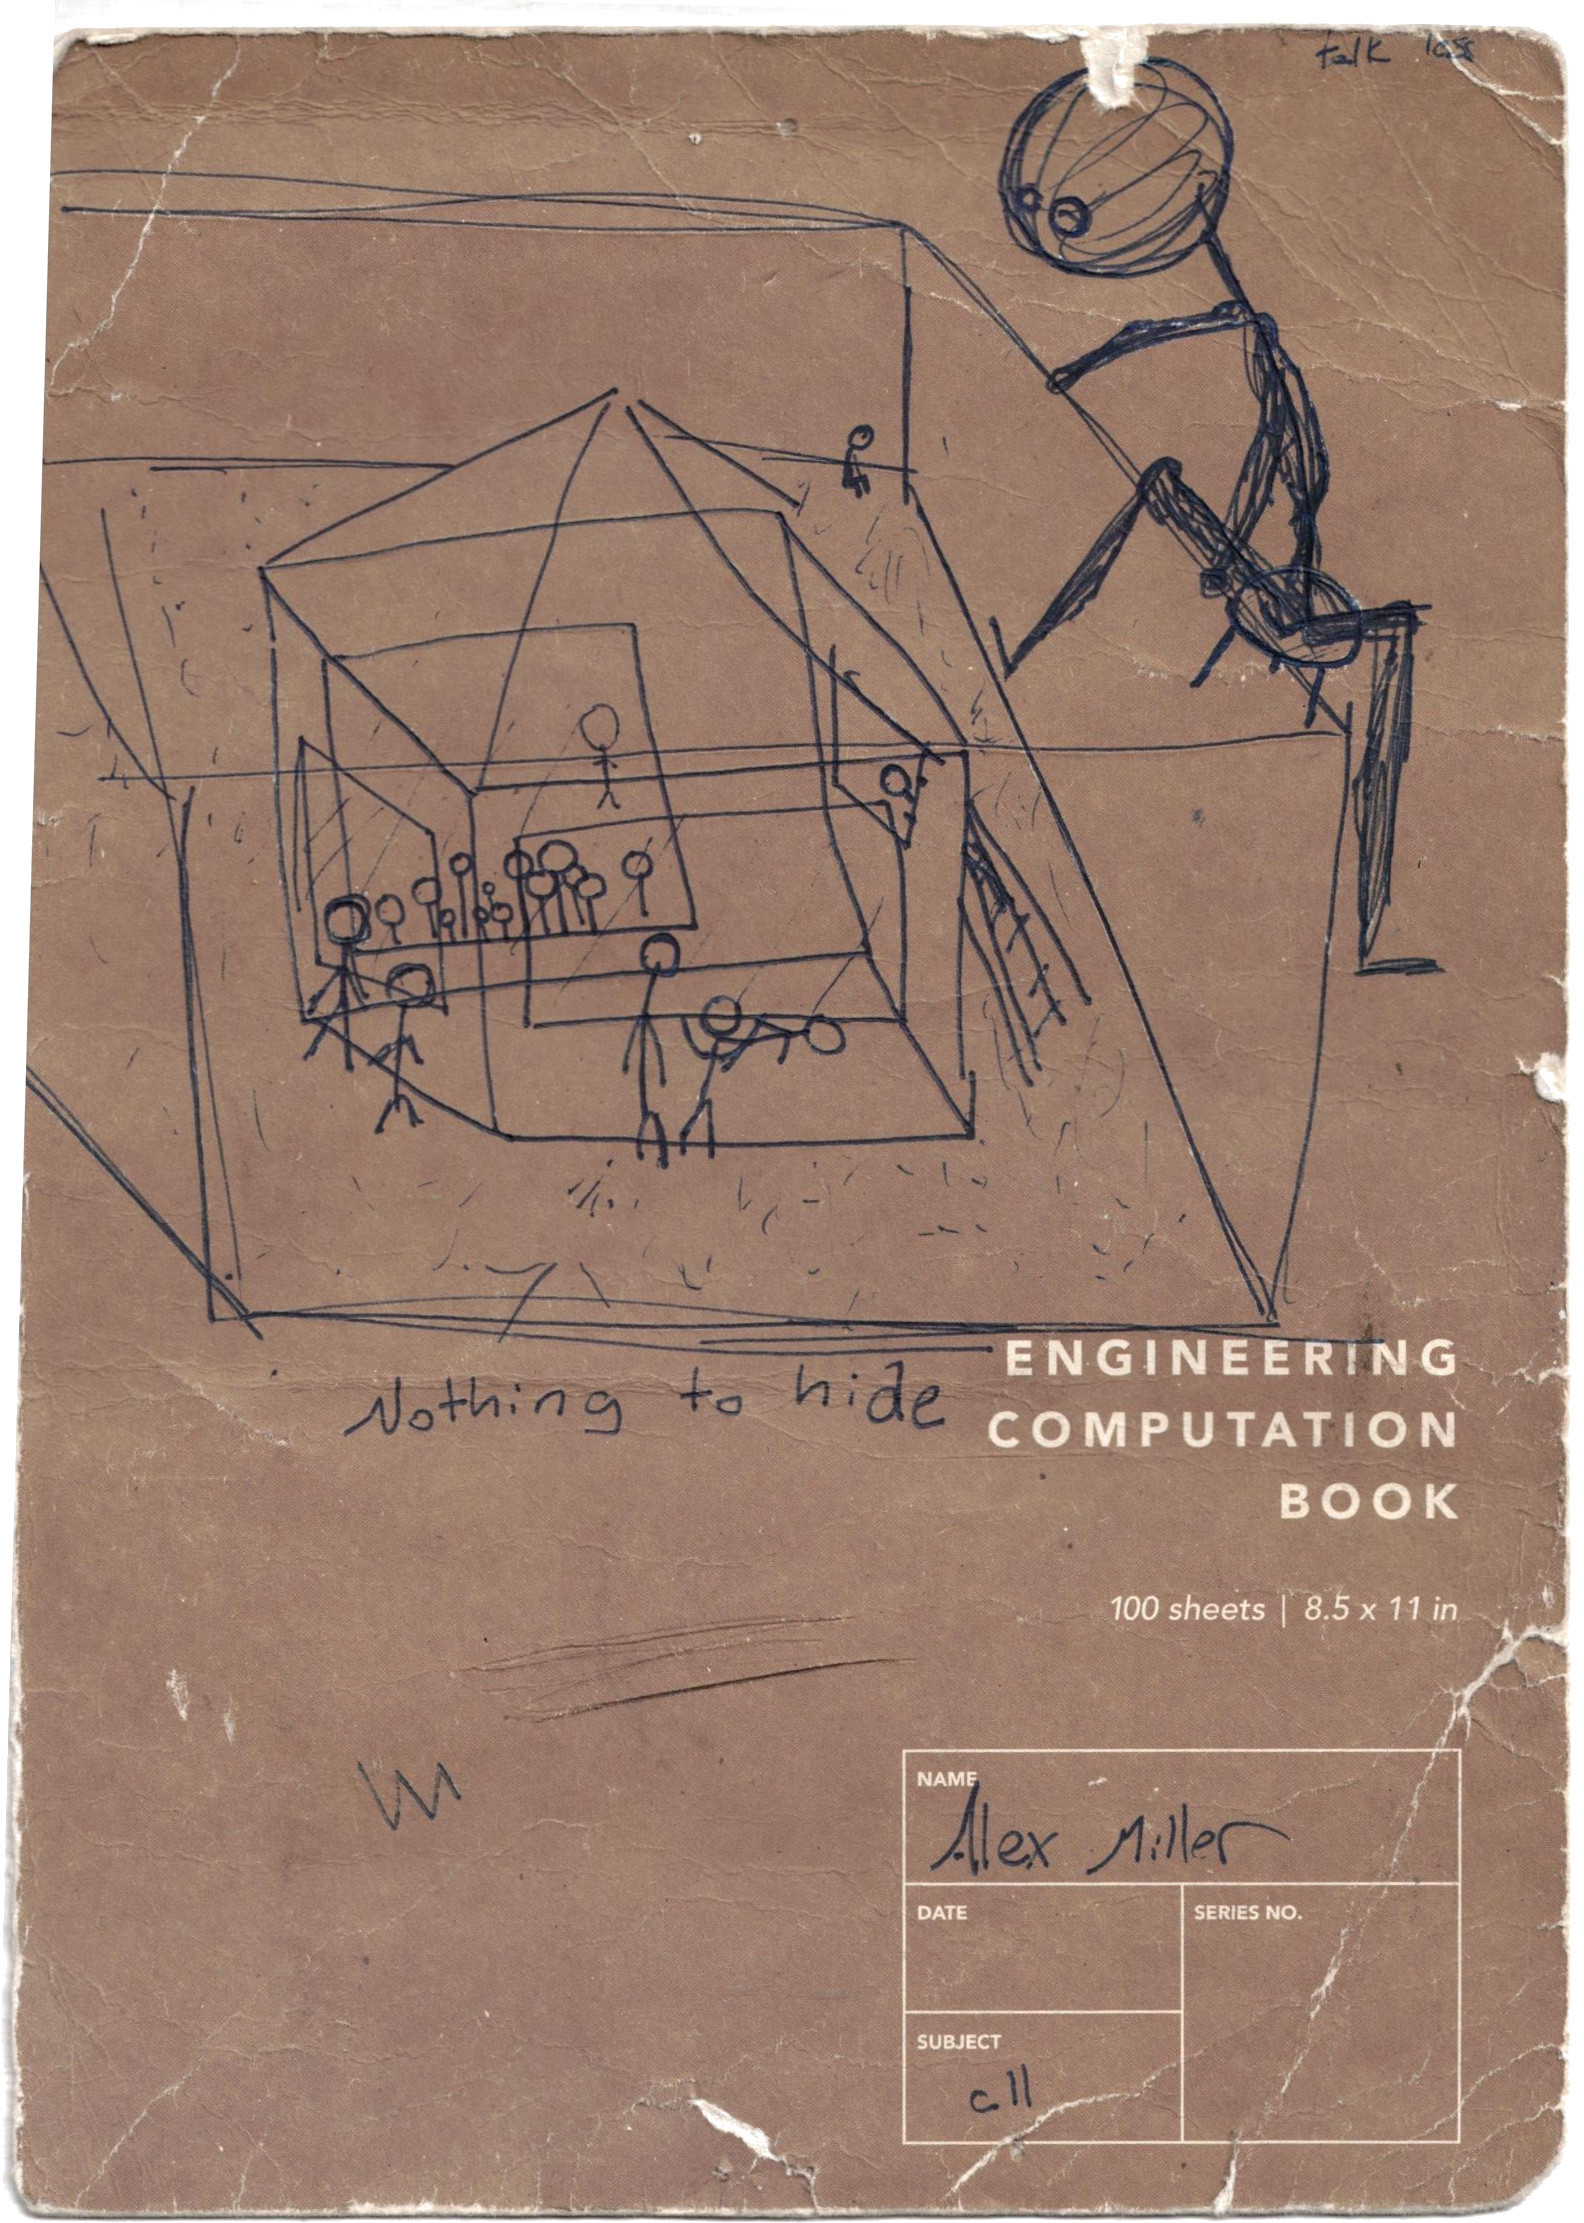 talk less
Nothing to hide
ENGINEERING
COMPUTATION
BOOK
100 sheets | 8.5 x 11 in
NAME
Alex Miller
DATE
SERIES NO.
SUBJECT
all